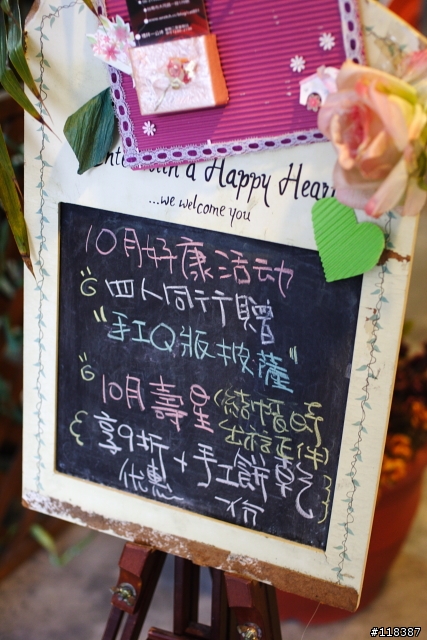 Enter with a Happy Heart
...we welcome you
10月好康活动
四人同行贈
"手工Q版披薩"
10月壽星(結帳時
出示証件)
享9折+手工餅乾
优惠 一份
#118387